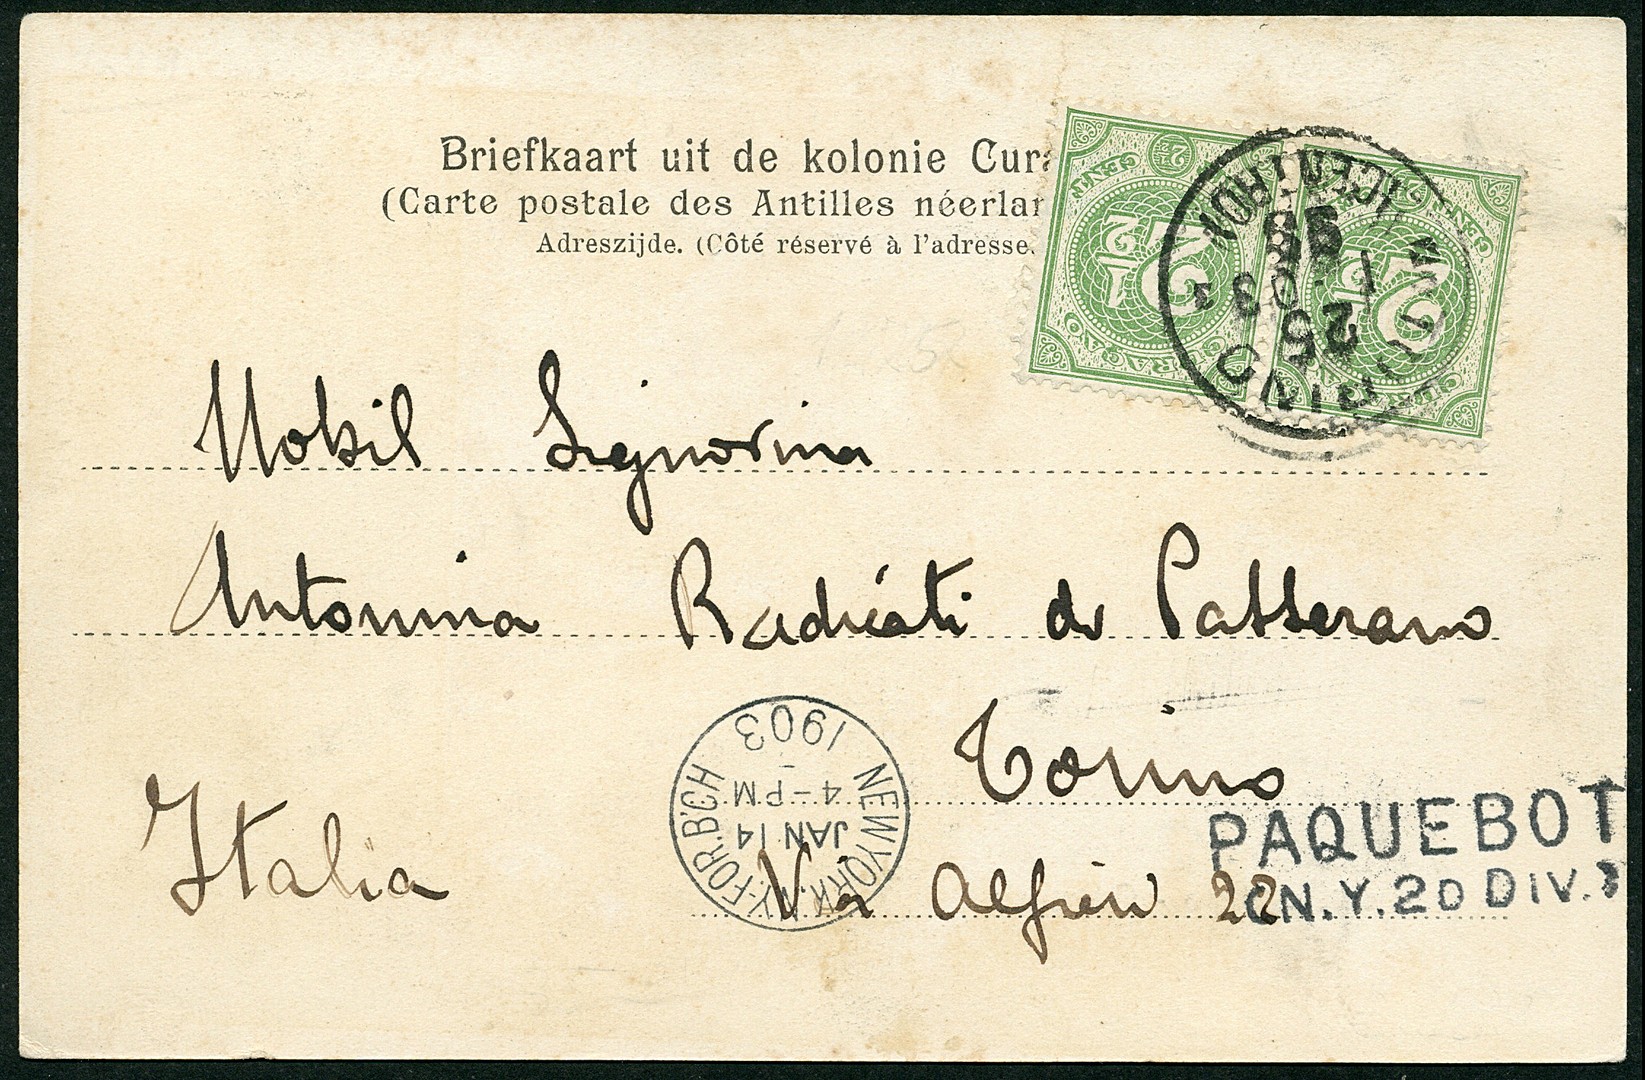 Briefkaart uit de kolonie Cura
(Carte postale des Antilles néerlan
Adreszijde. (Côté réservé à l'adresse.
2½ CENT
CURAÇAO
2½ CENT
CURAÇAO
TORINO
(CENTRO)
25
1 03
Nobil Signorina
Antonina Radicati di Passerano
Torino
NEW YORK, N.Y.-FOR. B'CH
JAN 14
4-PM
1903
PAQUEBOT
(N.Y. 2D DIV.)
Italia
Via Alfieri 22